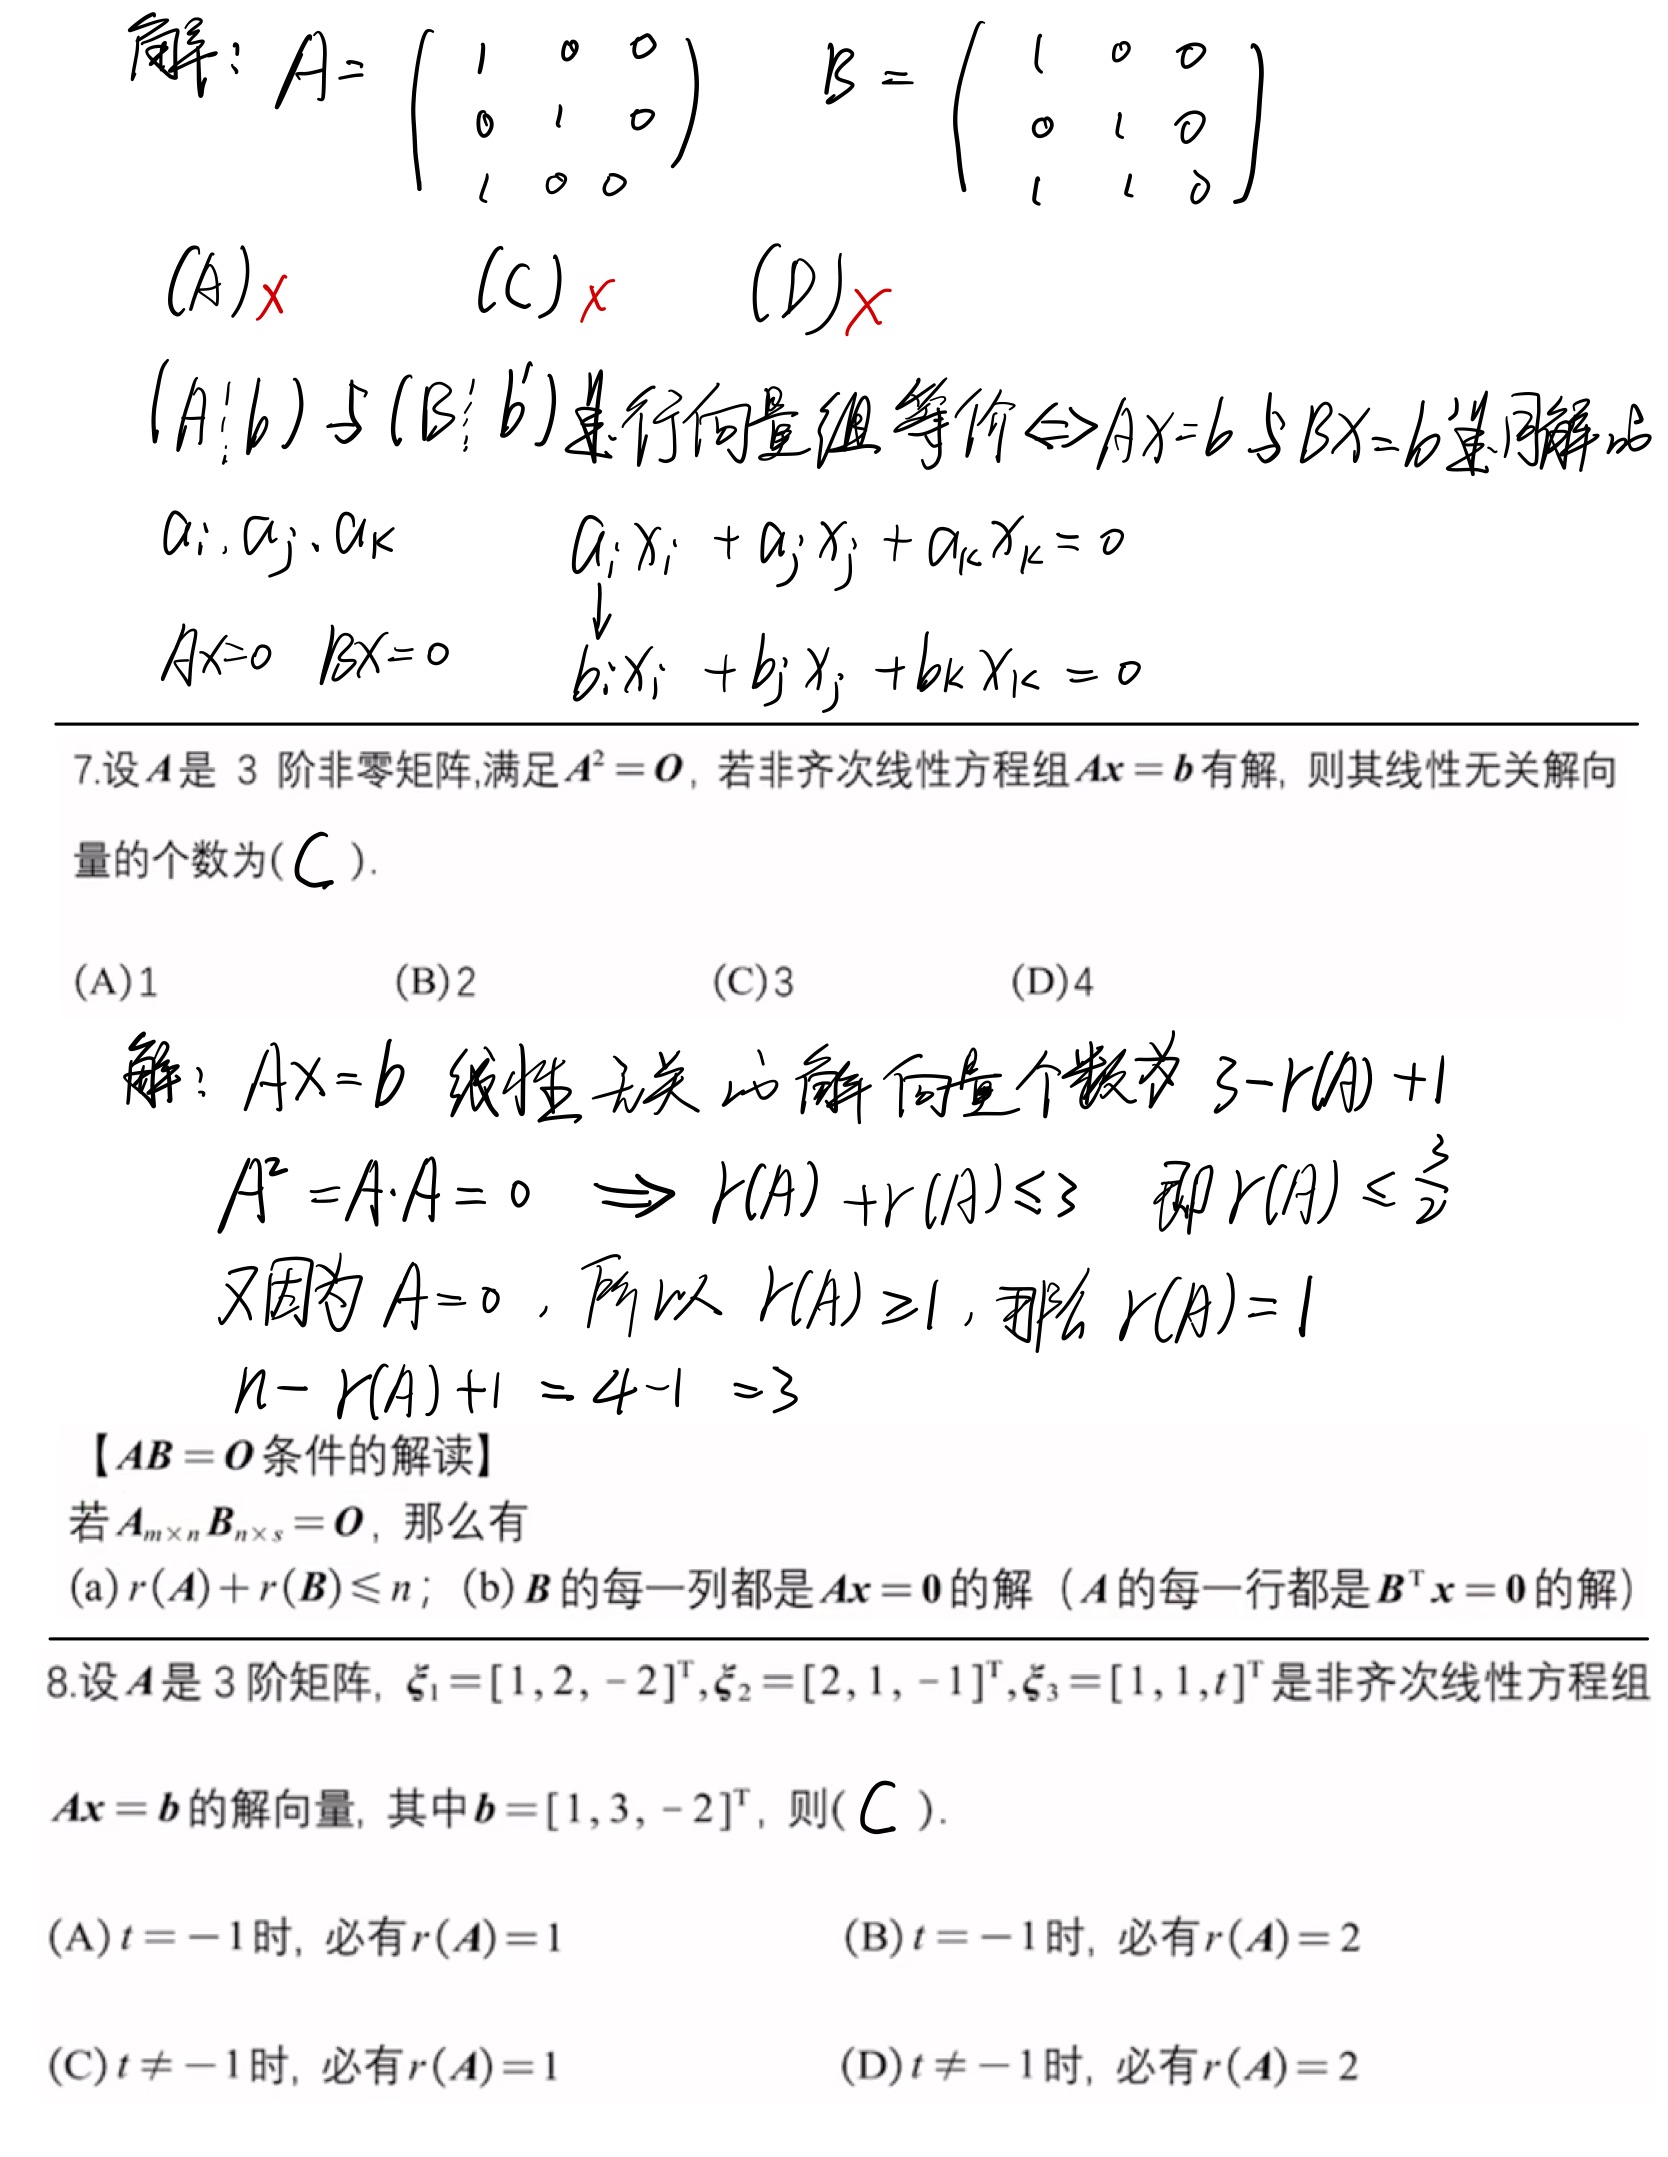 解: A = ( 1 0 0 B = ( 1 0 0
0 1 0 0 1 0
1 0 0 ) 1 1 0 )
(A)× (C)× (D)×
(A⋮b)与(B⋮b')其行向量组等价⇔AX=b与BX=b'其同解的
aᵢ、aⱼ、aₖ aᵢxᵢ + aⱼxⱼ + aₖxₖ = 0
↓
AX=0 BX=0 bᵢxᵢ + bⱼxⱼ + bₖxₖ = 0
7.设A是 3 阶非零矩阵,满足A²=O, 若非齐次线性方程组Ax=b有解, 则其线性无关解向
量的个数为( C ).
(A)1 (B)2 (C)3 (D)4
解: AX=b 线性无关的解向量个数为 3-r(A)+1
A²=A·A=0 ⇒ r(A)+r(A)≤3 即r(A)≤3/2
又因为A=0, 所以 r(A)≥1, 那么 r(A)=1
n-r(A)+1 =4-1 =3
【AB=O条件的解读】
若Aₘ×ₙBₙ×ₛ=O, 那么有
(a)r(A)+r(B)≤n; (b)B的每一列都是Ax=0的解 (A的每一行都是Bᵀx=0的解)
8.设A是3阶矩阵, ξ₁=[1,2,-2]ᵀ,ξ₂=[2,1,-1]ᵀ,ξ₃=[1,1,t]ᵀ是非齐次线性方程组
Ax=b的解向量, 其中b=[1,3,-2]ᵀ, 则( C ).
(A)t=-1时, 必有r(A)=1 (B)t=-1时, 必有r(A)=2
(C)t≠-1时, 必有r(A)=1 (D)t≠-1时, 必有r(A)=2